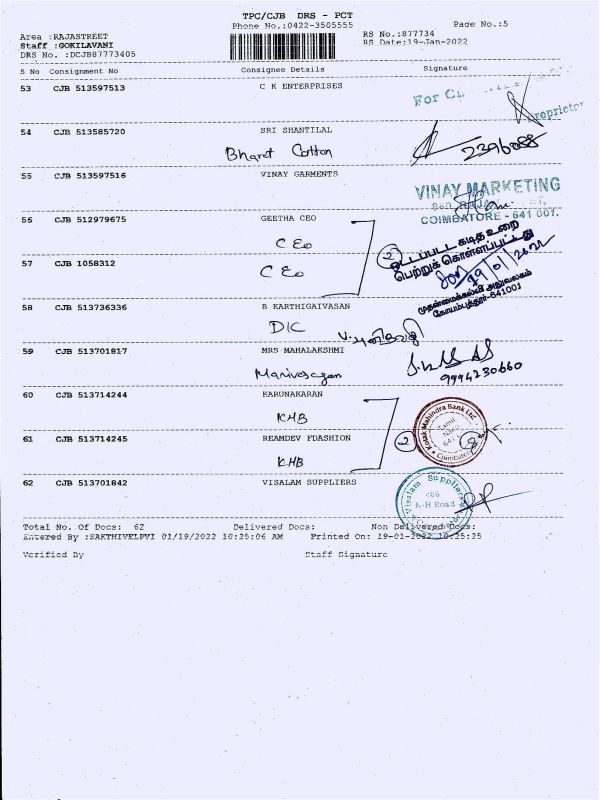 TPC/CJB DRS - PCT
Phone No.:0422-3505555
Page No.:5
Area :RAJASTREET
RS No.:877734
Staff :GOKILAVANI
RS Date:19-Jan-2022
DRS No. :DCJB87773405
S No Consignment No Consignee Details Signature
53 CJB 513597513 C K ENTERPRISES
For
Proprietor
54 CJB 513585720 SRI SHANTILAL
Bharat Cotton 2396088
55 CJB 513597516 VINAY GARMENTS
VINAY MARKETING
COIMBATORE - 641 001.
56 CJB 512979675 GEETHA CEO
CEO 2
கடித உறை
பெற்றுக் கொள்ளப்பட்டது
57 CJB 1058312
CEO
19/01/2022
முதன்மைக்கல்வி அலுவலகம்
கோயம்புத்தூர்-641001
58 CJB 513736336 B KARTHIGAIVASAN
DIC
59 CJB 513701817 MRS MAHALAKSHMI
9994230660
60 CJB 513714244 KARUNAKARAN
KMB
Kotak Mahindra Bank Ltd
Tamil
Coimbatore
61 CJB 513714245 REAMDEV FDASHION
KMB 2
62 CJB 513701842 VISALAM SUPPLIERS
Visalam Suppliers
N-H Road
Total No. Of Docs: 62 Delivered Docs: Non Delivered Docs:
Entered By :SAKTHIVELPVI 01/19/2022 10:25:06 AM Printed On: 19-01-2022 10:25:25
Verified By Staff Signature